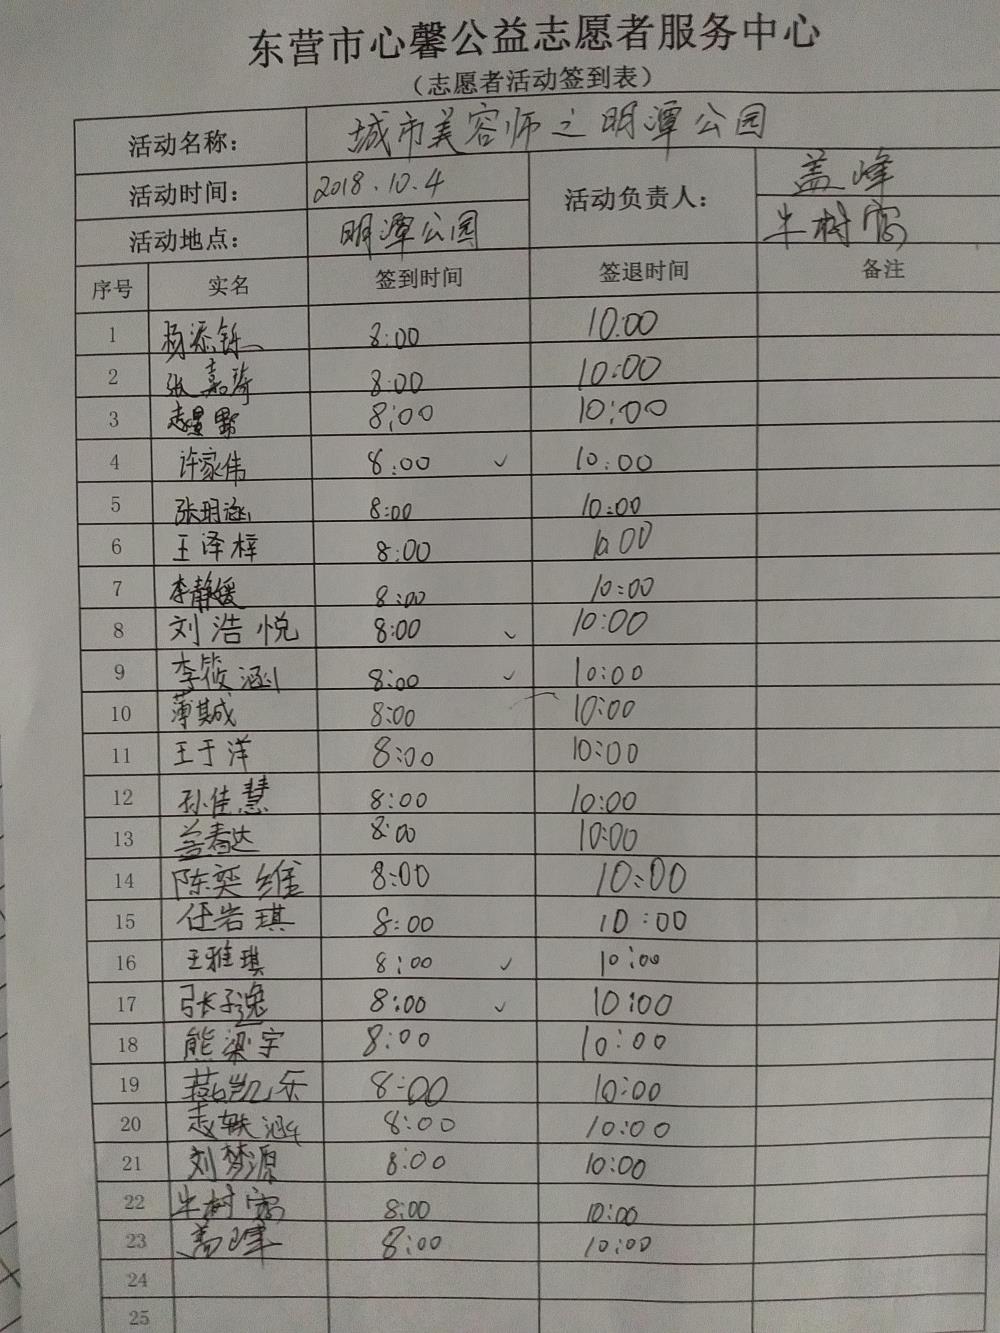 东营市心馨公益志愿者服务中心
（志愿者活动签到表）
活动名称： 城市美容师之明潭公园
活动时间： 2018.10.4 活动负责人： 盖峰
活动地点： 明潭公园 牛树
序号 实名 签到时间 签退时间 备注
1 杨添铄 8:00 10:00
2 张嘉琦 8:00 10:00
3 8:00 10:00
4 许家伟 8:00 ✓ 10:00
5 张玥涵 8:00 10:00
6 王泽梓 8:00 10:00
7 李静媛 8:00 10:00
8 刘浩悦 8:00 ✓ 10:00
9 李筱涵 8:00 ✓ 10:00
10 薄其成 8:00 10:00
11 王于洋 8:00 10:00
12 孙佳慧 8:00 10:00
13 盖春达 8:00 10:00
14 陈奕维 8:00 10:00
15 任岩琪 8:00 10:00
16 王雅琪 8:00 ✓ 10:00
17 张子逸 8:00 ✓ 10:00
18 熊梁宇 8:00 10:00
19 燕凯乐 8:00 10:00
20 轶涵 8:00 10:00
21 刘梦源 8:00 10:00
22 牛树 8:00 10:00
23 盖峰 8:00 10:00
24
25